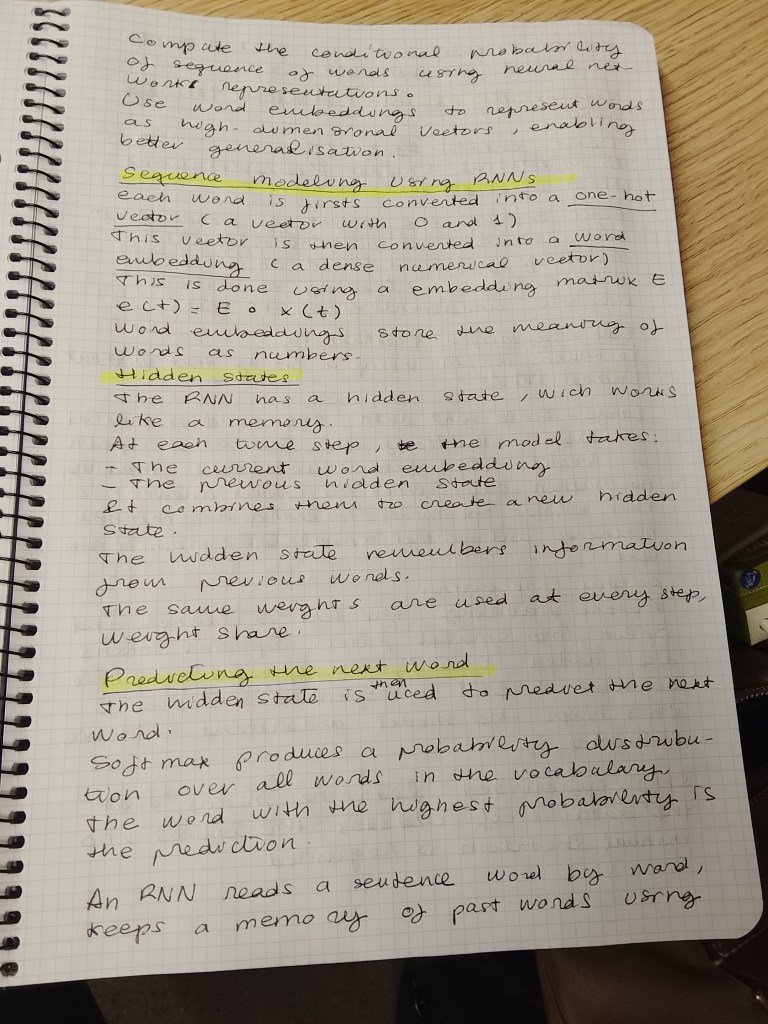 Compute the conditional probability
of sequence of words using neural net-
works representations.
Use word embeddings to represent words
as high-dimensional vectors, enabling
better generalisation.
Sequence modeling using RNNs
each word is firsts converted into a one-hot
vector (a vector with 0 and 1)
This vector is then converted into a word
embedding (a dense numerical vector)
This is done using a embedding matrix E
e(t) = E • x(t)
word embeddings store the meaning of
words as numbers.
Hidden states
The RNN has a hidden state, wich works
like a memory.
At each time step, the model takes:
- The current word embedding
- The previous hidden state
It combines them to create a new hidden
state.
The hidden state remembers information
from previous words.
The same weights are used at every step,
weight share.
Predicting the next word
The hidden state is then used to predict the next
word.
Softmax produces a probability distribu-
tion over all words in the vocabulary.
The word with the highest probability is
the prediction.
An RNN reads a sentence word by word,
keeps a memory of past words using